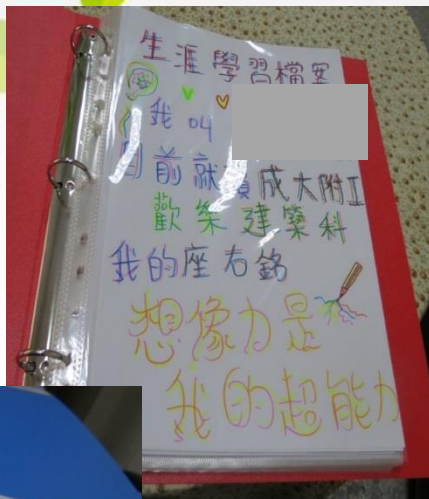 生涯學習檔案
我叫
目前就讀成大附工
歡樂建築科
我的座右銘
想像力是
我的超能力